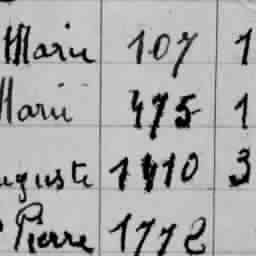 Marie 107 1
Marie 475 1
uguste 1410 3
Pierre 1772